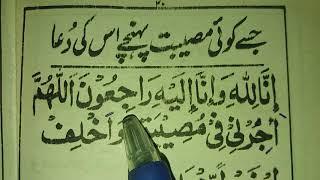 ۲۰
جسے کوئی مصیبت پہنچے اس کی دُعا
اِنَّا لِلّٰهِ وَاِنَّاۤ اِلَيْهِ رَاجِعُوْنَ اَللّٰهُمَّ
اْجُرْنِيْ فِيْ مُصِيْبَتِيْ وَاَخْلِفْ